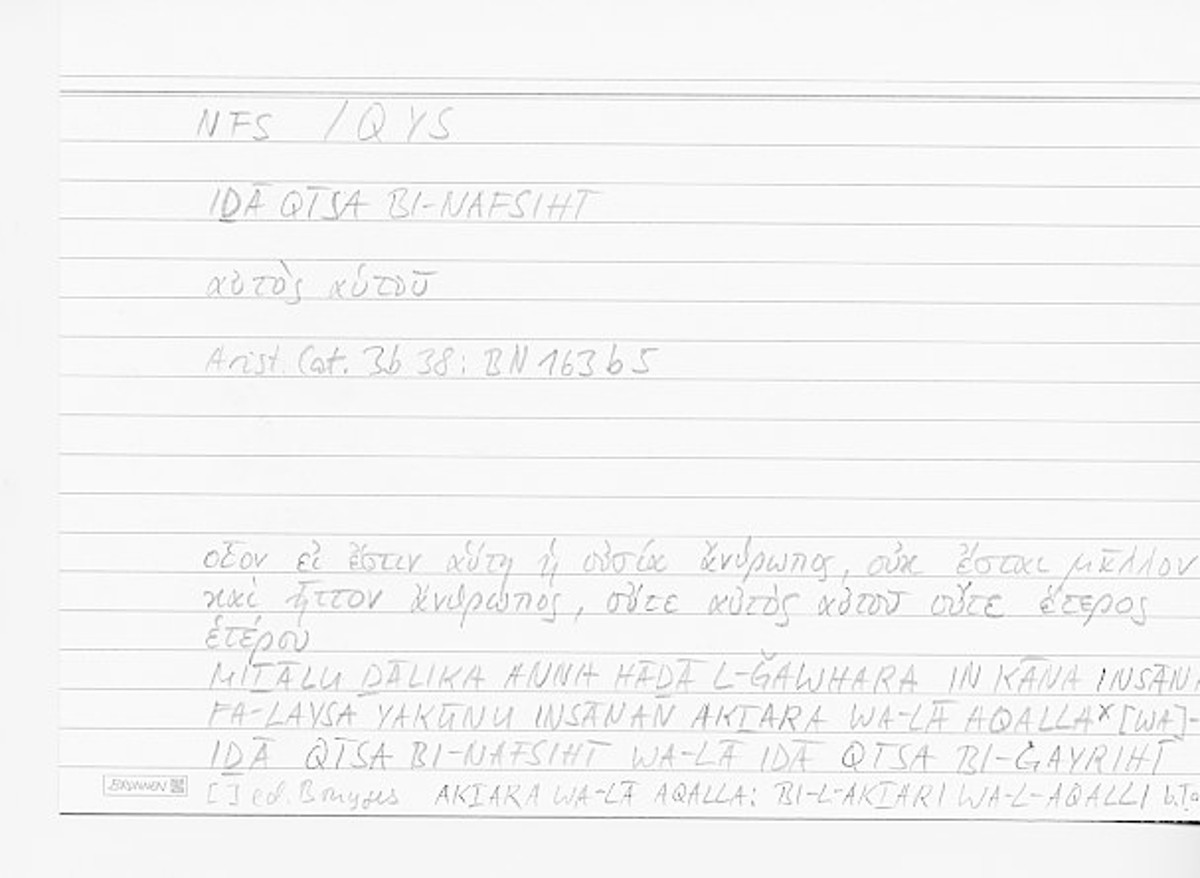 NFS / QYS
IḎĀ QĪSA BI-NAFSIHĪ
αὐτὸς αὑτοῦ
Arist. Cat. 3b 38: BN 163 b 5
οἷον εἰ ἔστιν αὕτη ἡ οὐσία ἄνθρωπος, οὐκ ἔσται μᾶλλον
καὶ ἧττον ἄνθρωπος, οὔτε αὐτὸς αὑτοῦ οὔτε ἕτερος
ἑτέρου
MIṮĀLU ḎĀLIKA ANNA HĀḎĀ L-ǦAWHARA IN KĀNA INSĀNA
FA-LAYSA YAKŪNU INSĀNAN AKṮARA WA-LĀ AQALLA× [WA]-
IḎĀ QĪSA BI-NAFSIHĪ WA-LĀ IḎĀ QĪSA BI-ĠAYRIHĪ
BRUNNEN
[ ] ed. Bouyges AKṮARA WA-LĀ AQALLA: BI-L-AKṮARI WA-L-AQALLI